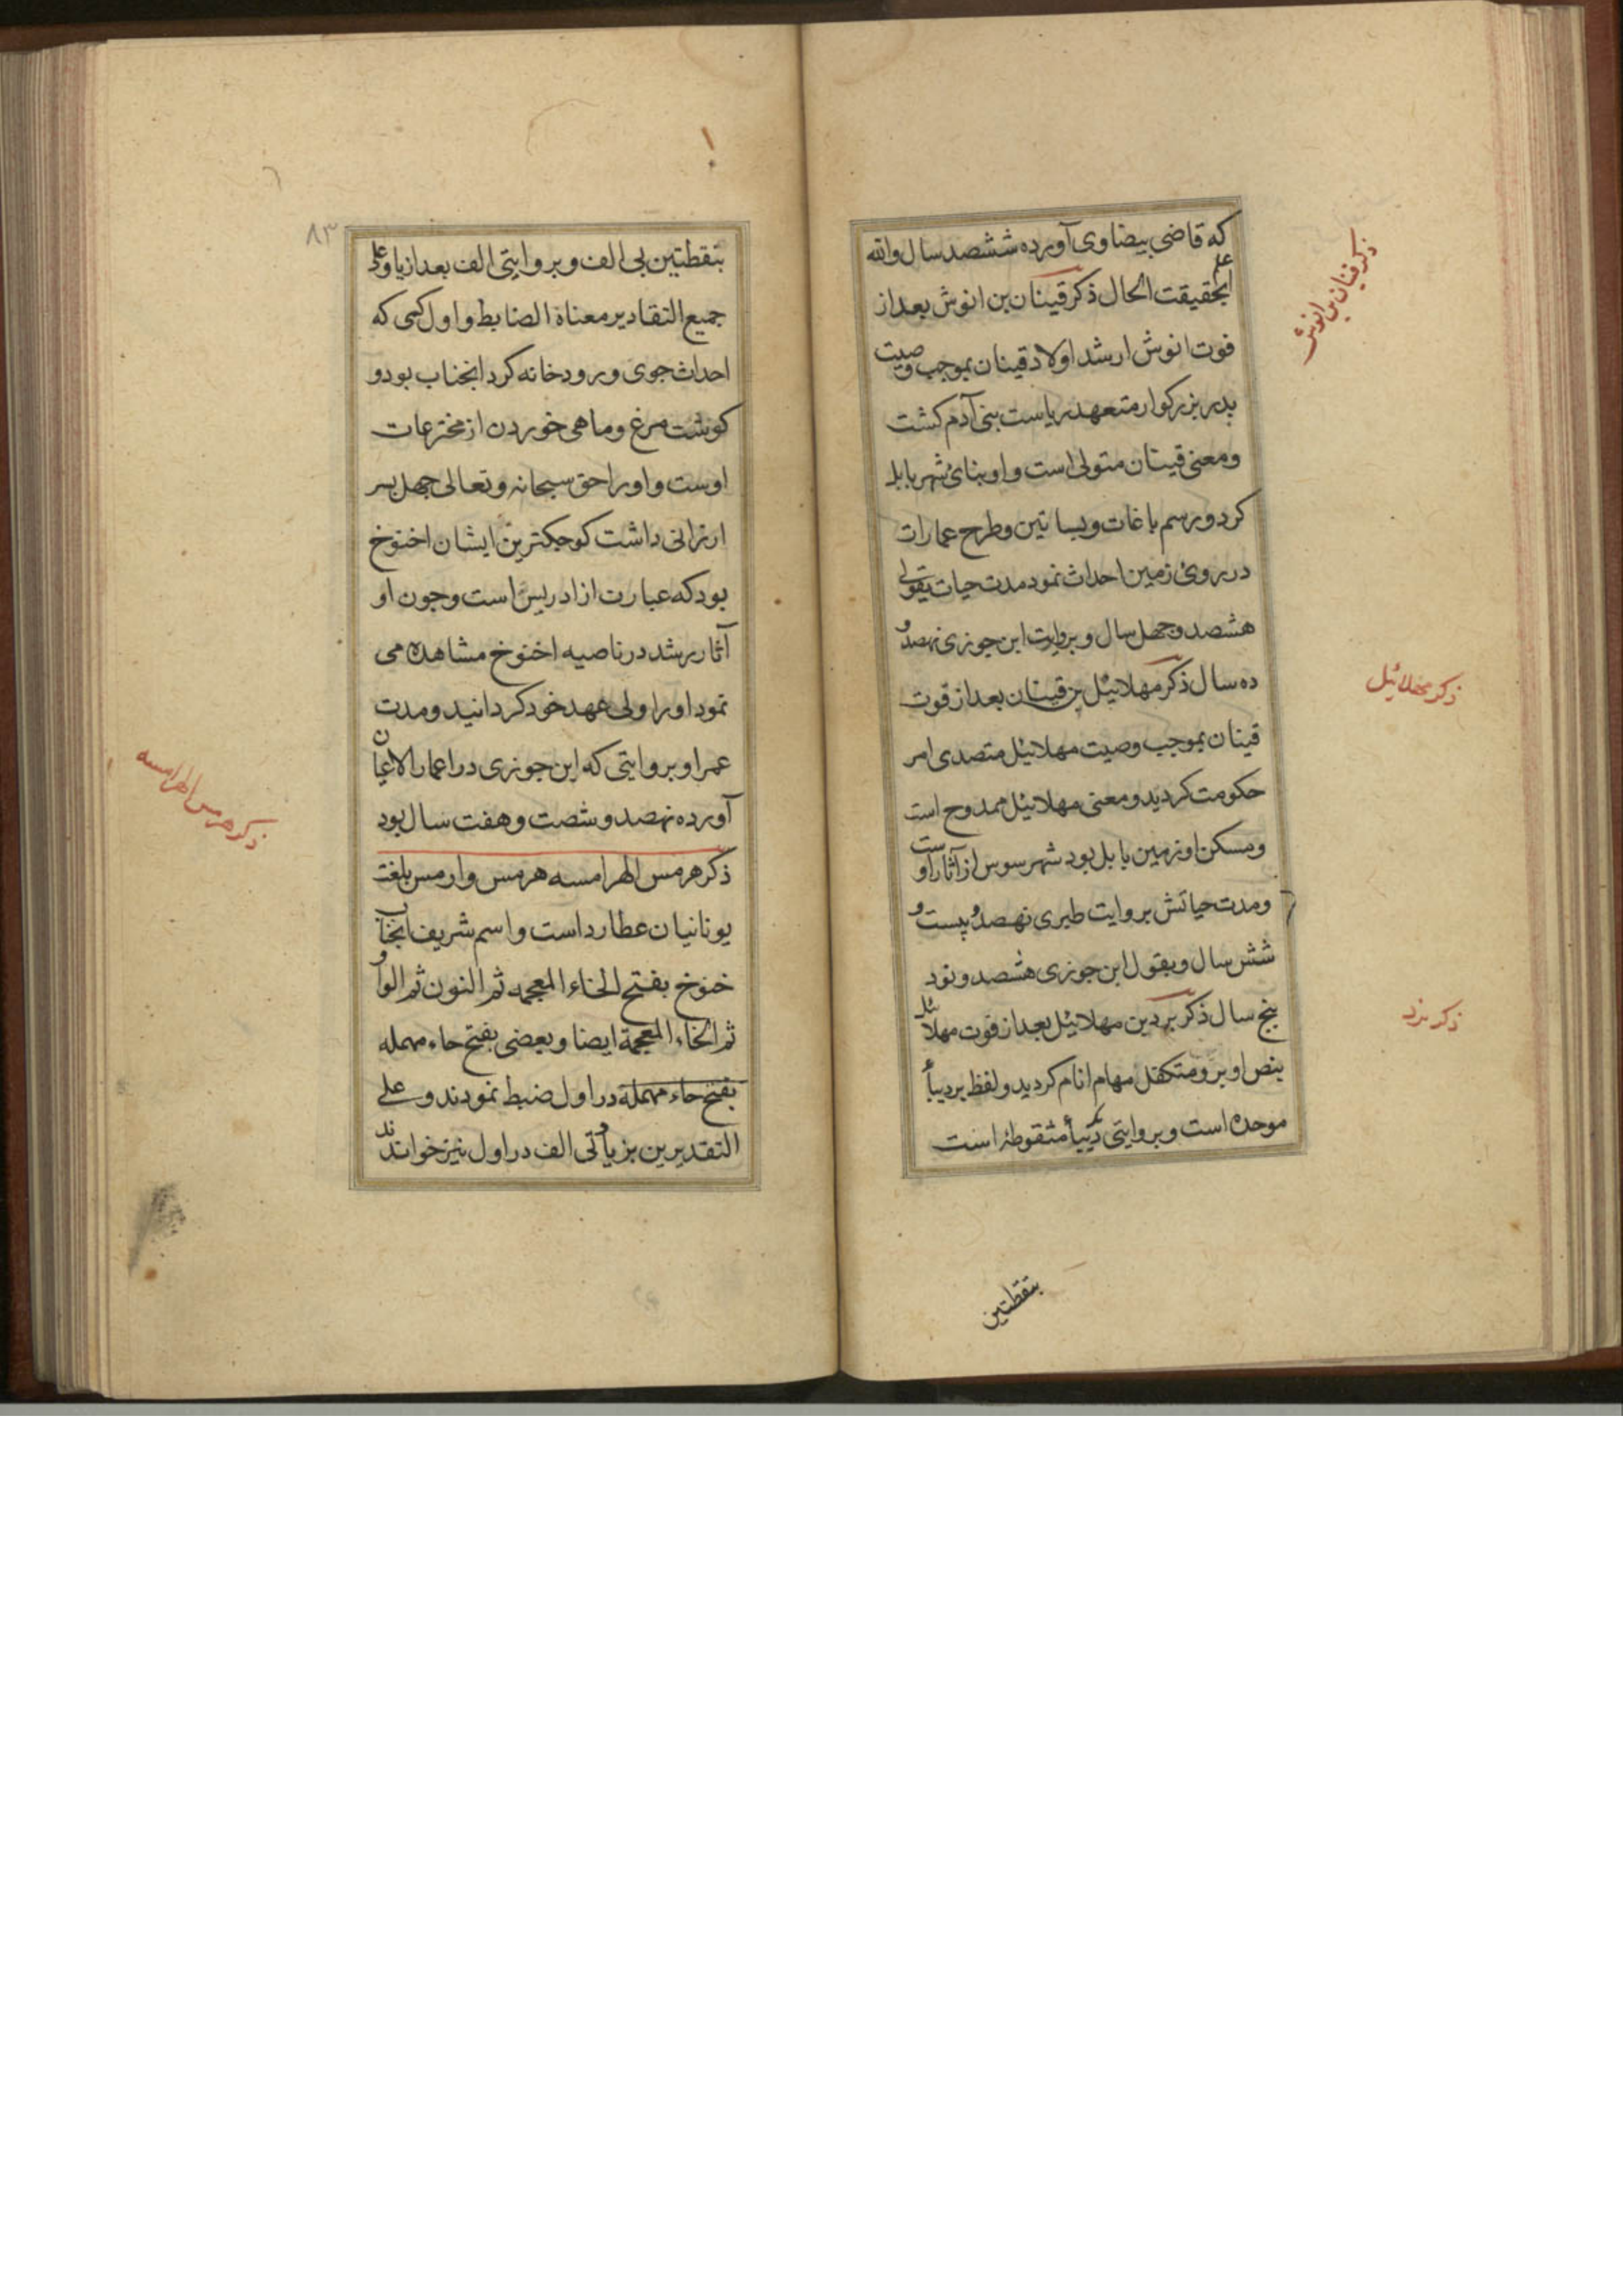 که قاضی بیضاوی آورده ششصد سال والله
اعلم بحقیقت الحال ذکر قینان بن انوش بعد از
فوت انوش ارشد اولاد قینان بموجب وصیت
بدر بزرکوار متعهد ریاست بنی آدم کشت
ومعنی قینان متولی است واو بنای شهر بابل
کرد ورسم باغات وبساتین وطرح عمارات
در روی زمین احداث نمود مدت حیات بقولی
هشصد وجهل سال وبروایت ابن جوزی نهصد و
ده سال ذکر مهلائیل بن قینان بعد از فوت
قینان بموجب وصیت مهلائیل متصدی امر
حکومت کردید ومعنی مهلائیل ممدوح است
ومسکن او زمین بابل بود شهر سوس از آثار اوست
ومدت حیاتش بروایت طبری نهصد وبیست و
شش سال وبقول ابن جوزی هشصد ونود
بنج سال ذکر یرد بن مهلائیل بعد از فوت مهلائیل
بنص او یرد متکفل مهام انام کردید ولفظ یرد بیاء
موحده است وبروایتی بیاء منقوطه است
بنقطتین
ذکر قینان بن انوش
ذکر مهلائیل
ذکر یرد
٨٣
بنقطتین بی الف وبروایتی الف بعد از یا وعلی
جمیع التقادیر معناه الضابط واول کسی که
احداث جوی ورودخانه کرد انجناب بود و
کوشت مرغ وماهی خوردن از مخترعات
اوست واورا حق سبحانه وتعالی جهل بسر
ارزانی داشت کوجکترین ایشان اخنوخ
بود که عبارت از ادریس است وجون او
آثار رشد در ناصیه اخنوخ مشاهده می
نمود اورا ولی عهد خود کردانید ومدت
عمر او بروایتی که ابن جوزی در اعمار الاعیان
آورده نهصد وشصت وهفت سال بود
ذکر هرمس الهرامسه هرمس وارمس بلغت
یونانیان عطارد است واسم شریف انجناب
خنوخ بفتح الخاء المعجمه ثم النون ثم الواو
ثم الخاء المعجمة ایضا وبعضی بفتح حاء مهمله
بفتح حاء مهمله در اول ضبط نمودند وعلی
التقدیرین بزیادتی الف در اول نیز خوانند
ذکر هرمس الهرامسه